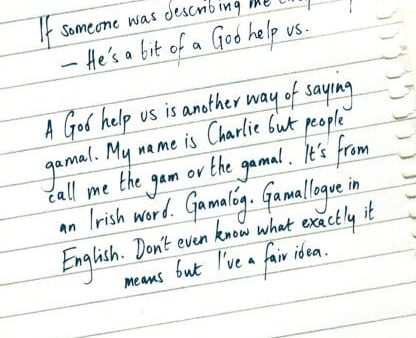 If someone was describing me they
– He's a bit of a God help us.
A God help us is another way of saying
gamal. My name is Charlie but people
call me the gam or the gamal. It's from
an Irish word. Gamalóg. Gamallogue in
English. Don't even know what exactly it
means but I've a fair idea.